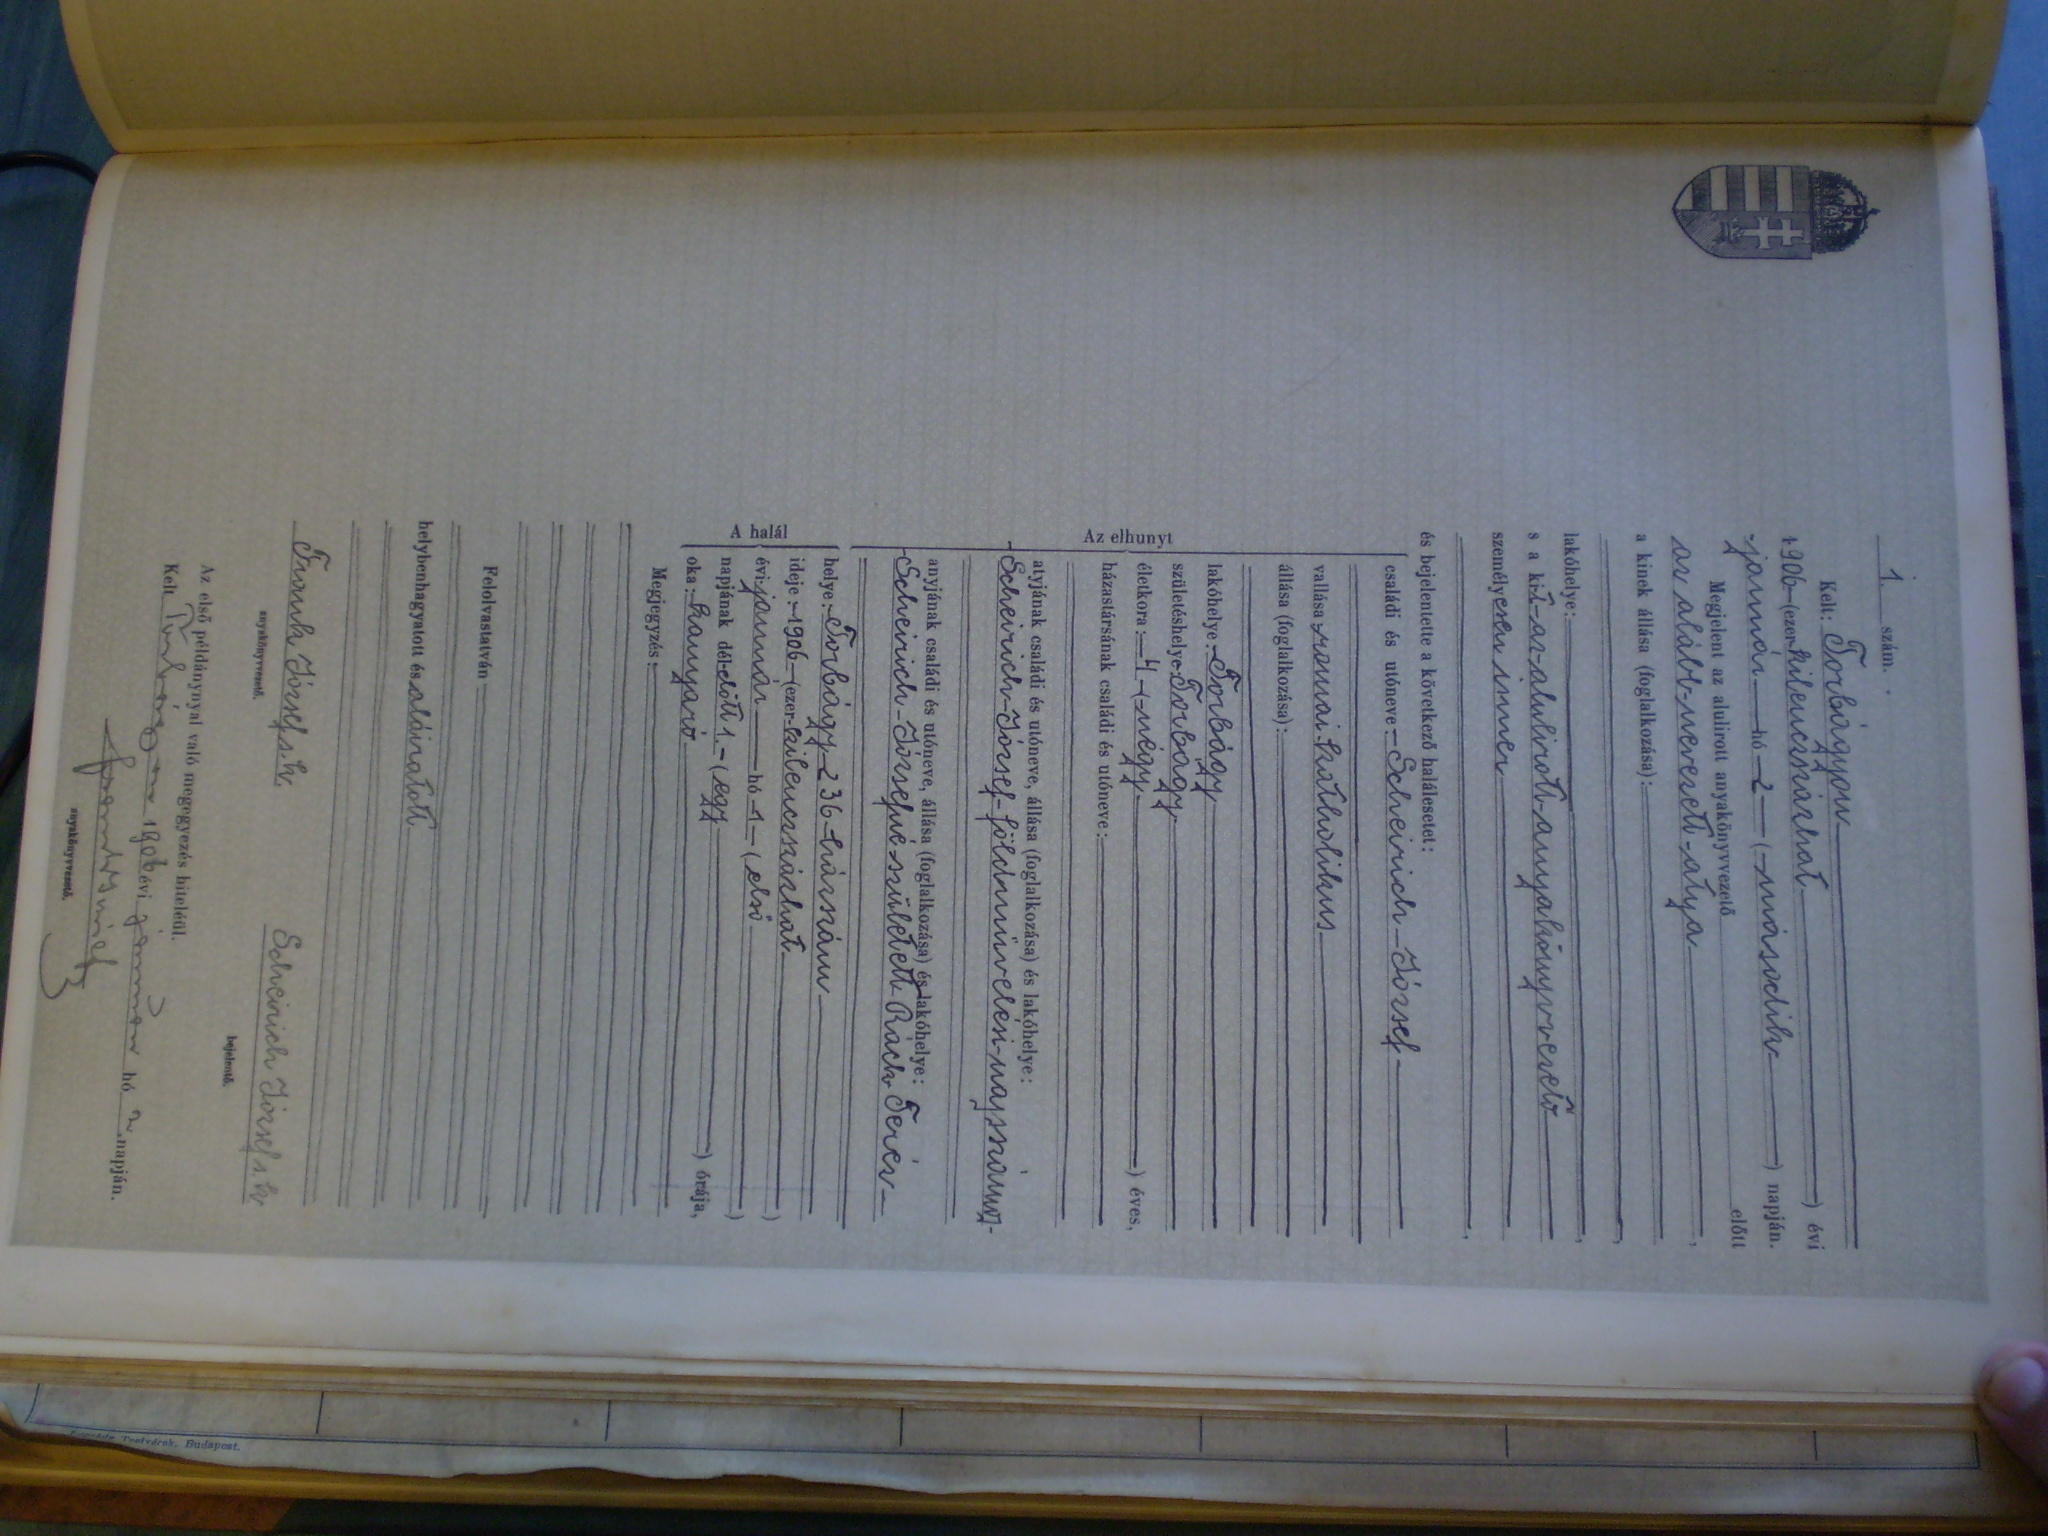 1. szám.
Kelt: Torbágyon
1906 (ezer-kilenczszázhat) évi
január hó 2 (második) napján.
Megjelent az alulirott anyakönyvvezető előtt
az alább nevezett atya,
a kinek állása (foglalkozása):
lakóhelye:
s a kit az alulirott anyakönyvvezető
személyesen ismer,
és bejelentette a következő halálesetet:
Az elhunyt
családi és utóneve: Scheirich József
vallása: római katholikus
állása (foglalkozása):
lakóhelye: Torbágy
születéshelye: Torbágy
életkora: 4 (négy) éves,
házastársának családi és utóneve:
atyjának családi és utóneve, állása (foglalkozása) és lakóhelye:
Scheirich József földmüvelési napszámos
anyjának családi és utóneve, állása (foglalkozása) és lakóhelye:
Scheirich Józsefné született Rack Teréz
A halál
helye: Torbágy 236 házszám
ideje: 1906 (ezer-kilenczszázhat)
évi: január hó 1 (első)
napjának dél-előtt 1 (egy) órája,
oka: kanyaró
Megjegyzés:
Felolvastatván
helybenhagyatott és aláiratott
József s.k. Scheirich József s.k.
anyakönyvvezető. bejelentő.
Az első példánynyal való megegyezés hiteléül.
Kelt 1906 évi január hó 2 napján.
anyakönyvvezető.
Budapest.